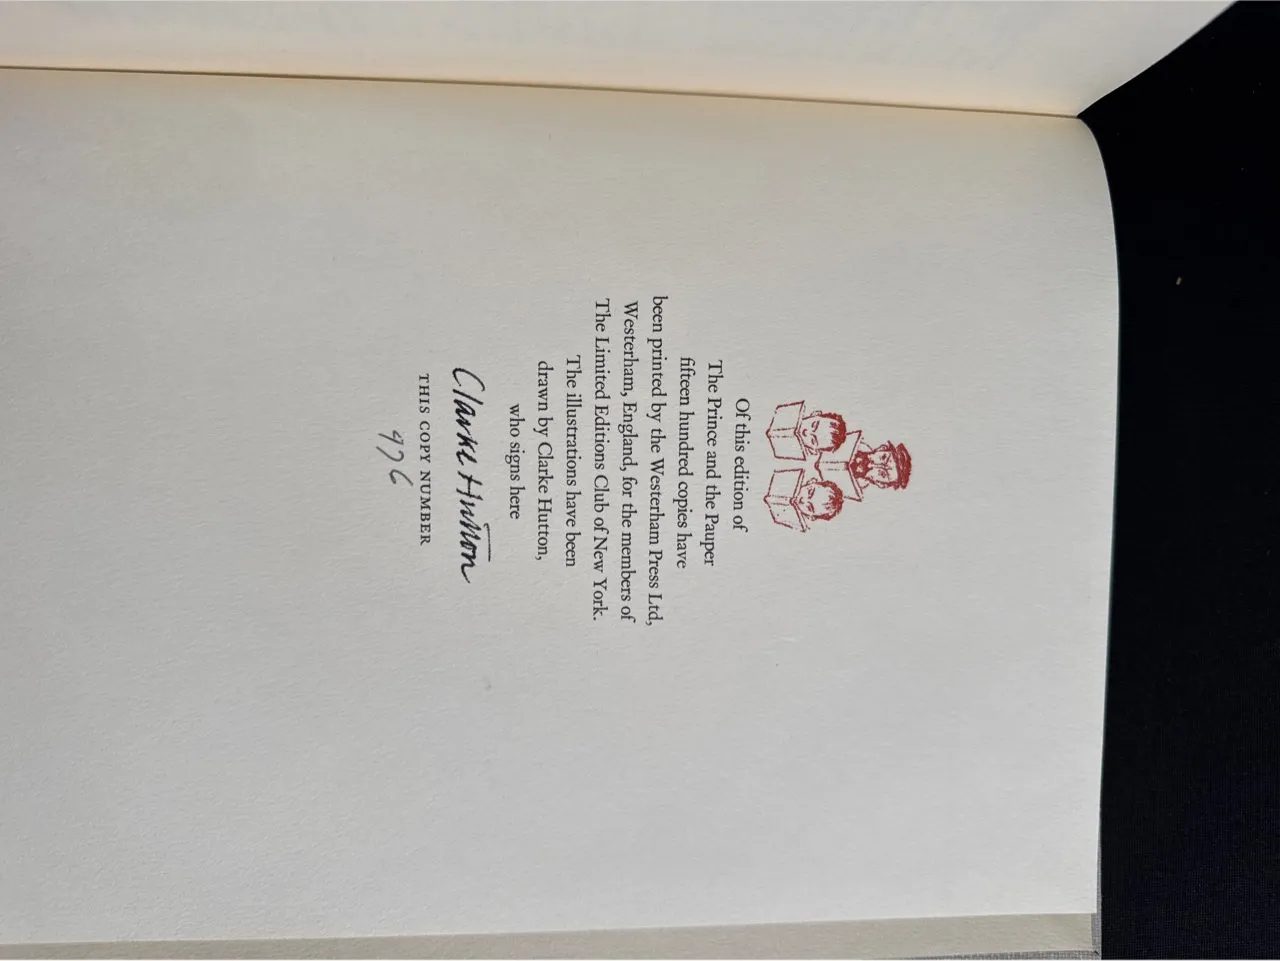 Of this edition of
The Prince and the Pauper
fifteen hundred copies have
been printed by the Westerham Press Ltd,
Westerham, England, for the members of
The Limited Editions Club of New York.
The illustrations have been
drawn by Clarke Hutton,
who signs here
Clarke Hutton
THIS COPY NUMBER
976